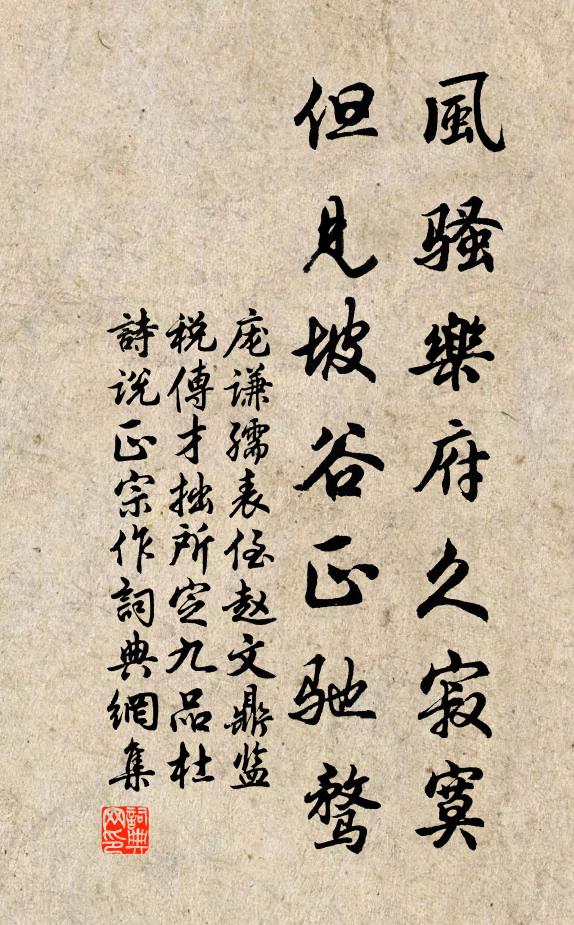 風騷樂府久寂寞
但見坡谷正馳騖
庞谦孺表侄赵文鼎监
税傳才拙所定九品杜
詩说正宗作詞典網集
詞典
网印